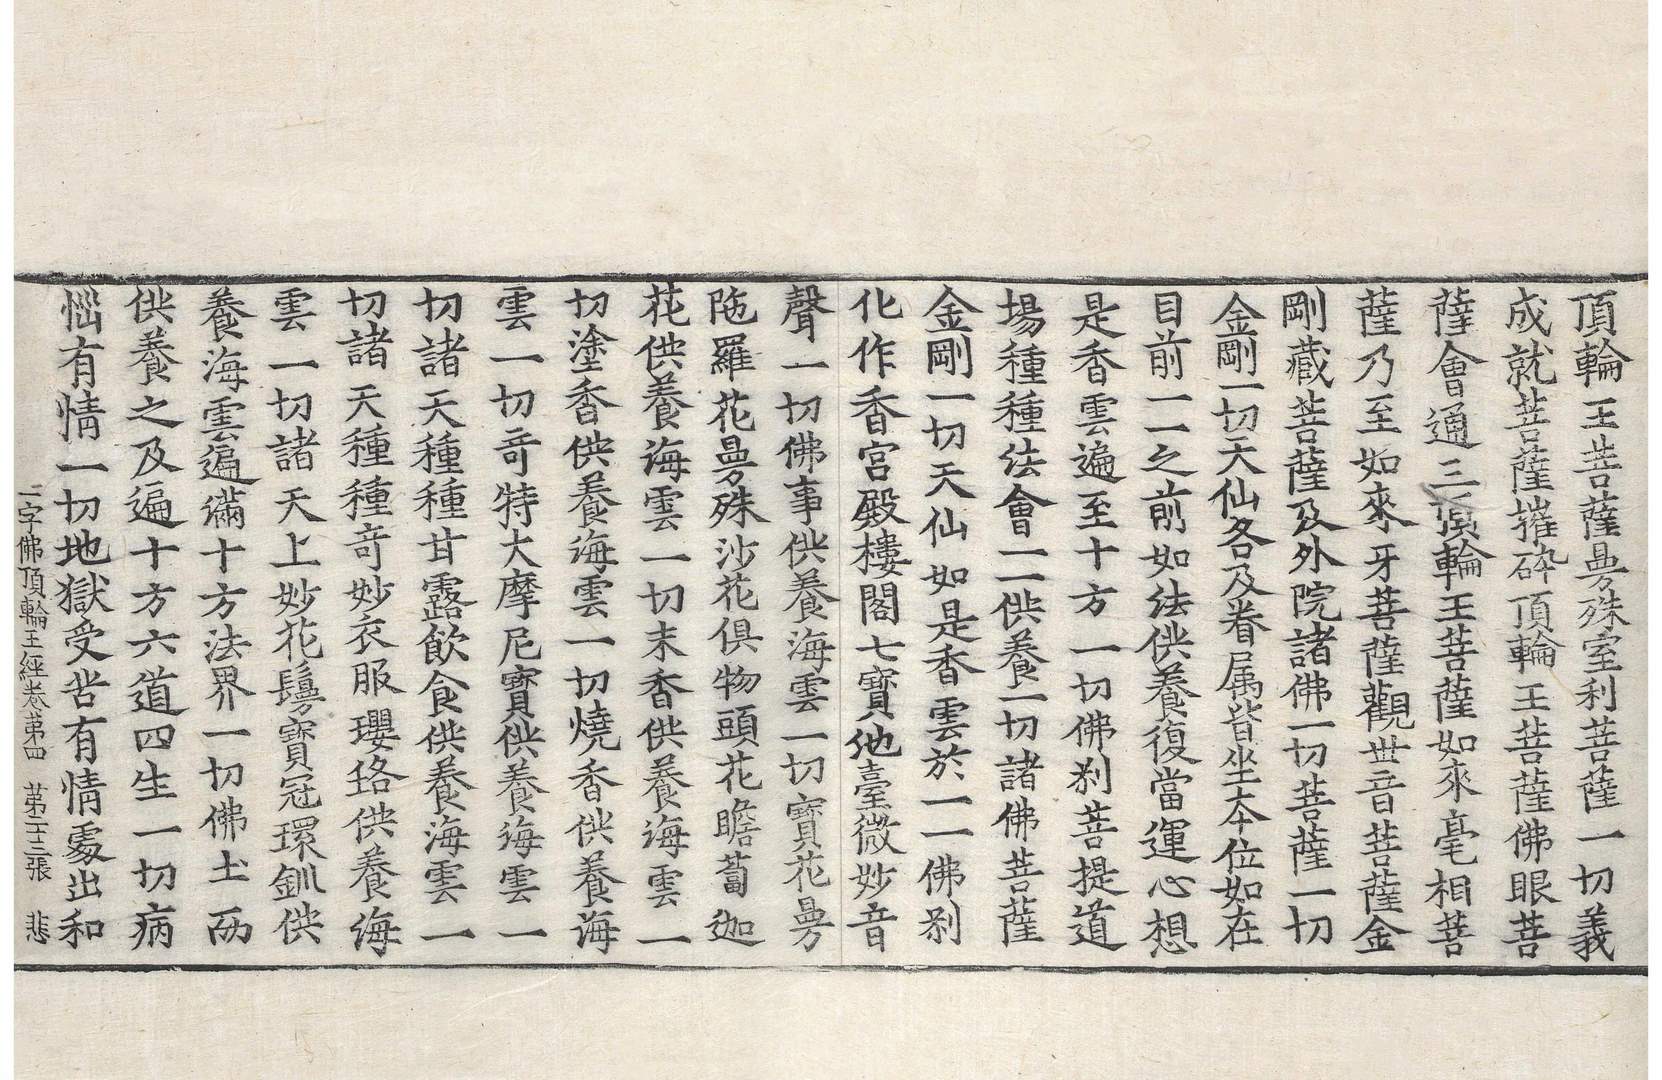 頂輪王菩薩曼殊室利菩薩一切義
成就菩薩摧碎頂輪王菩薩佛眼菩
薩會通三頂輪王菩薩如來毫相菩
薩乃至如來牙菩薩觀世音菩薩金
剛藏菩薩及外院諸佛一切菩薩一切
金剛一切天仙各及眷属皆坐本位如在
目前一一之前如法供養復當運心想
是香雲遍至十方一切佛刹菩提道
場種種法會一一供養一切諸佛菩薩
金剛一切天仙如是香雲於一一佛刹
化作香宮殿樓閣七寶池臺微妙音
聲一切佛事供養海雲一切寶花曼
陁羅花曼殊沙花俱物頭花瞻蔔迦
花供養海雲一切末香供養海雲一
切塗香供養海雲一切燒香供養海
雲一切竒特大摩尼寶供養海雲一
切諸天種種甘露飲食供養海雲一
切諸天種種竒妙衣服瓔珞供養海
雲一切諸天上妙花鬘寶冠環釧供
養海雲遍滿十方法界一切佛土而
供養之及遍十方六道四生一切病
惱有情一切地獄受苦有情處出和
一字佛頂輪王經卷第四　第二十三張　悲